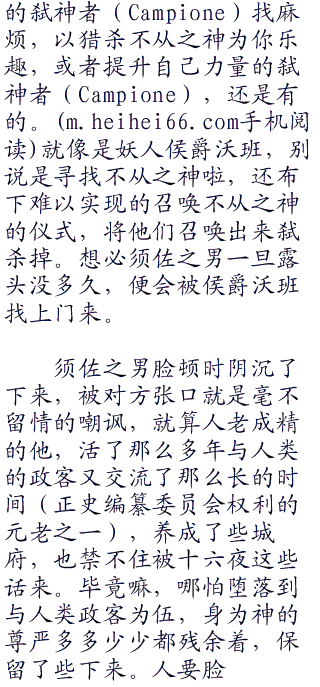 的弑神者（Campione）找麻
烦，以猎杀不从之神为你乐
趣，或者提升自己力量的弑
神者（Campione），还是有
的。(m.heihei66.com手机阅
读)就像是妖人侯爵沃班，别
说是寻找不从之神啦，还布
下难以实现的召唤不从之神
的仪式，将他们召唤出来弑
杀掉。想必须佐之男一旦露
头没多久，便会被侯爵沃班
找上门来。
须佐之男脸顿时阴沉了
下来，被对方张口就是毫不
留情的嘲讽，就算人老成精
的他，活了那么多年与人类
的政客又交流了那么长的时
间（正史编纂委员会权利的
元老之一），养成了些城
府，也禁不住被十六夜这些
话来。毕竟嘛，哪怕堕落到
与人类政客为伍，身为神的
尊严多多少少都残余着，保
留了些下来。人要脸